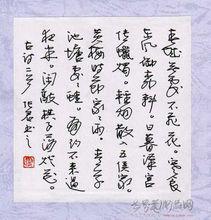 春城無處不飛花寒食
東風御柳斜日暮漢宮
傳蠟燭輕烟散入五侯家
黄梅時節家々雨青草
池塘處々蛙有約不来過
夜半閒敲棋子落灯花
古诗二首